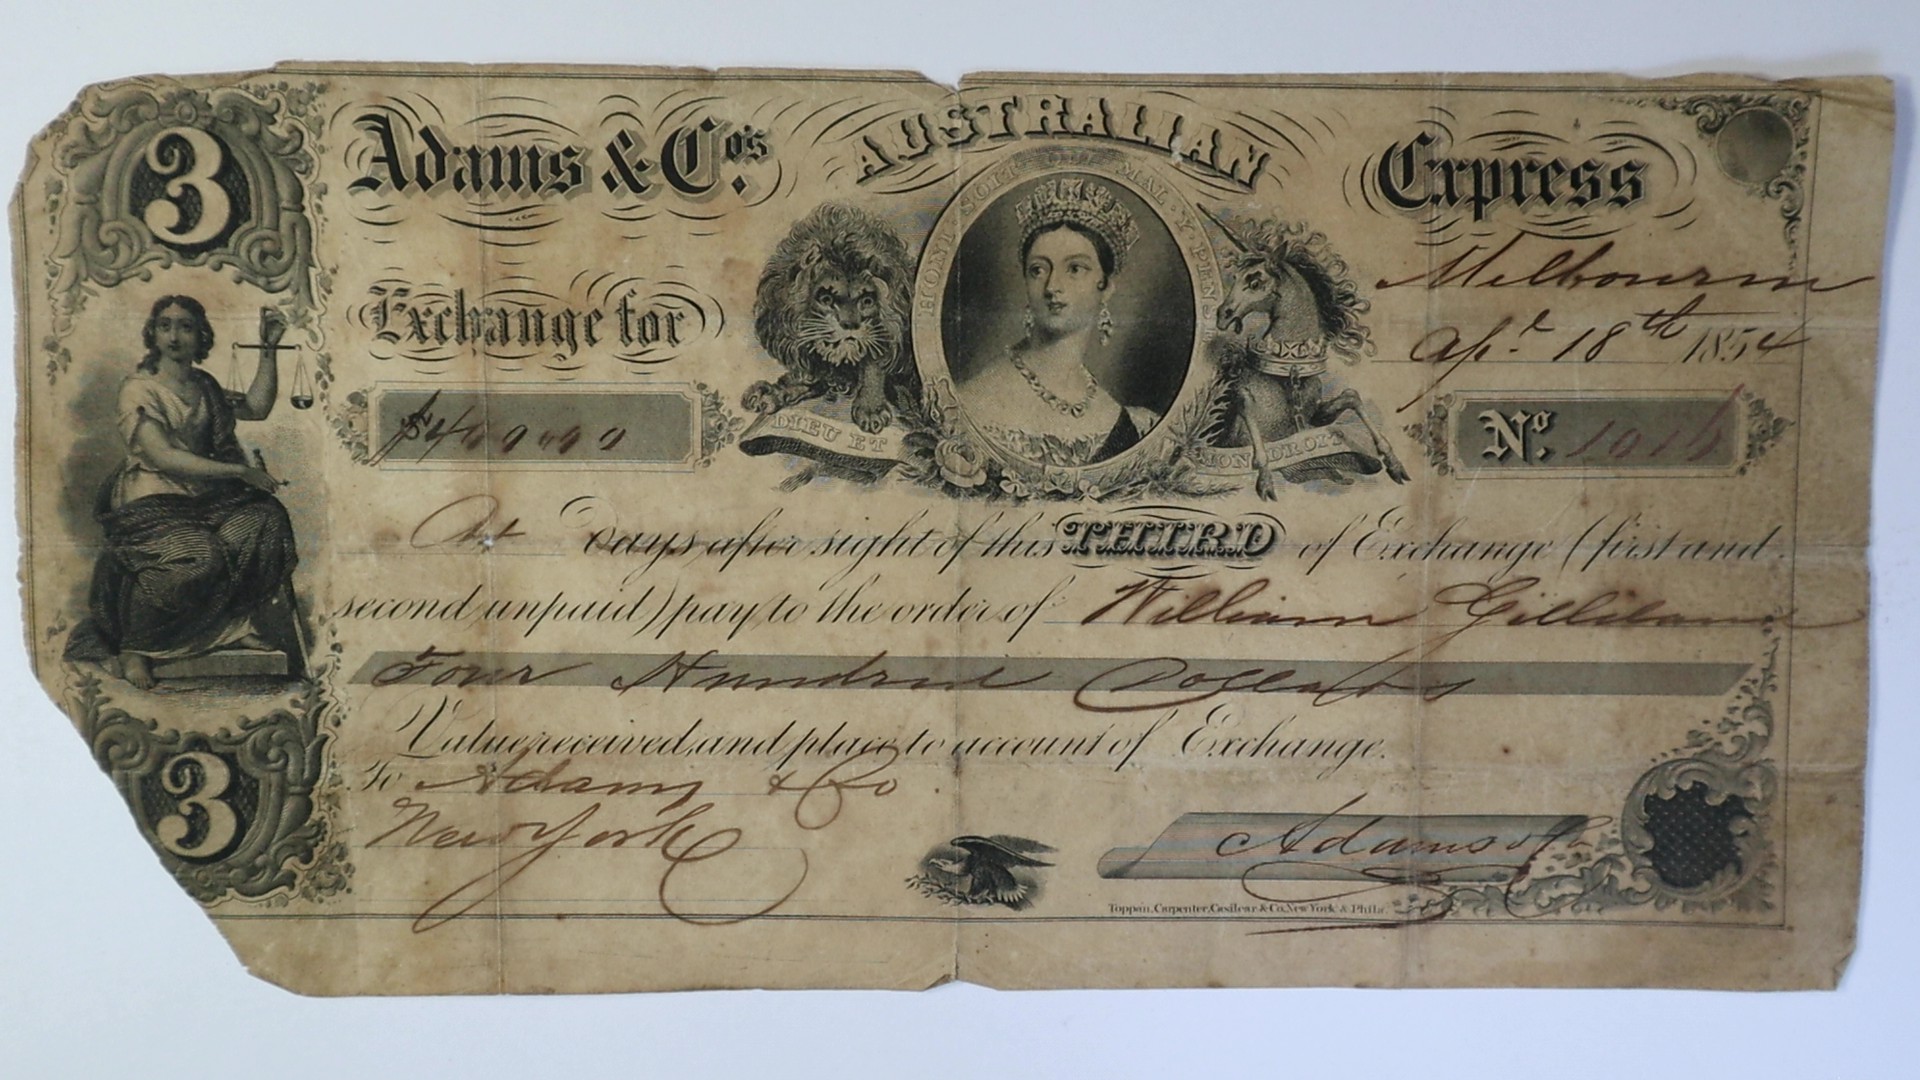 3
Adams & Co's AUSTRALIAN Express
HONI SOIT QUI MAL Y PENSE
Melbourne
Apl 18th 1854
Exchange for
$400.00
DIEU ET MON DROIT
No.
At Days after sight of this THIRD of Exchange (first and
second unpaid) pay to the order of William Gilliland
Four Hundred Dollars
Value received, and place to account of Exchange.
To Adams & Co
New York
Adams & Co
3
Toppan, Carpenter, Casilear & Co. New York & Phila.